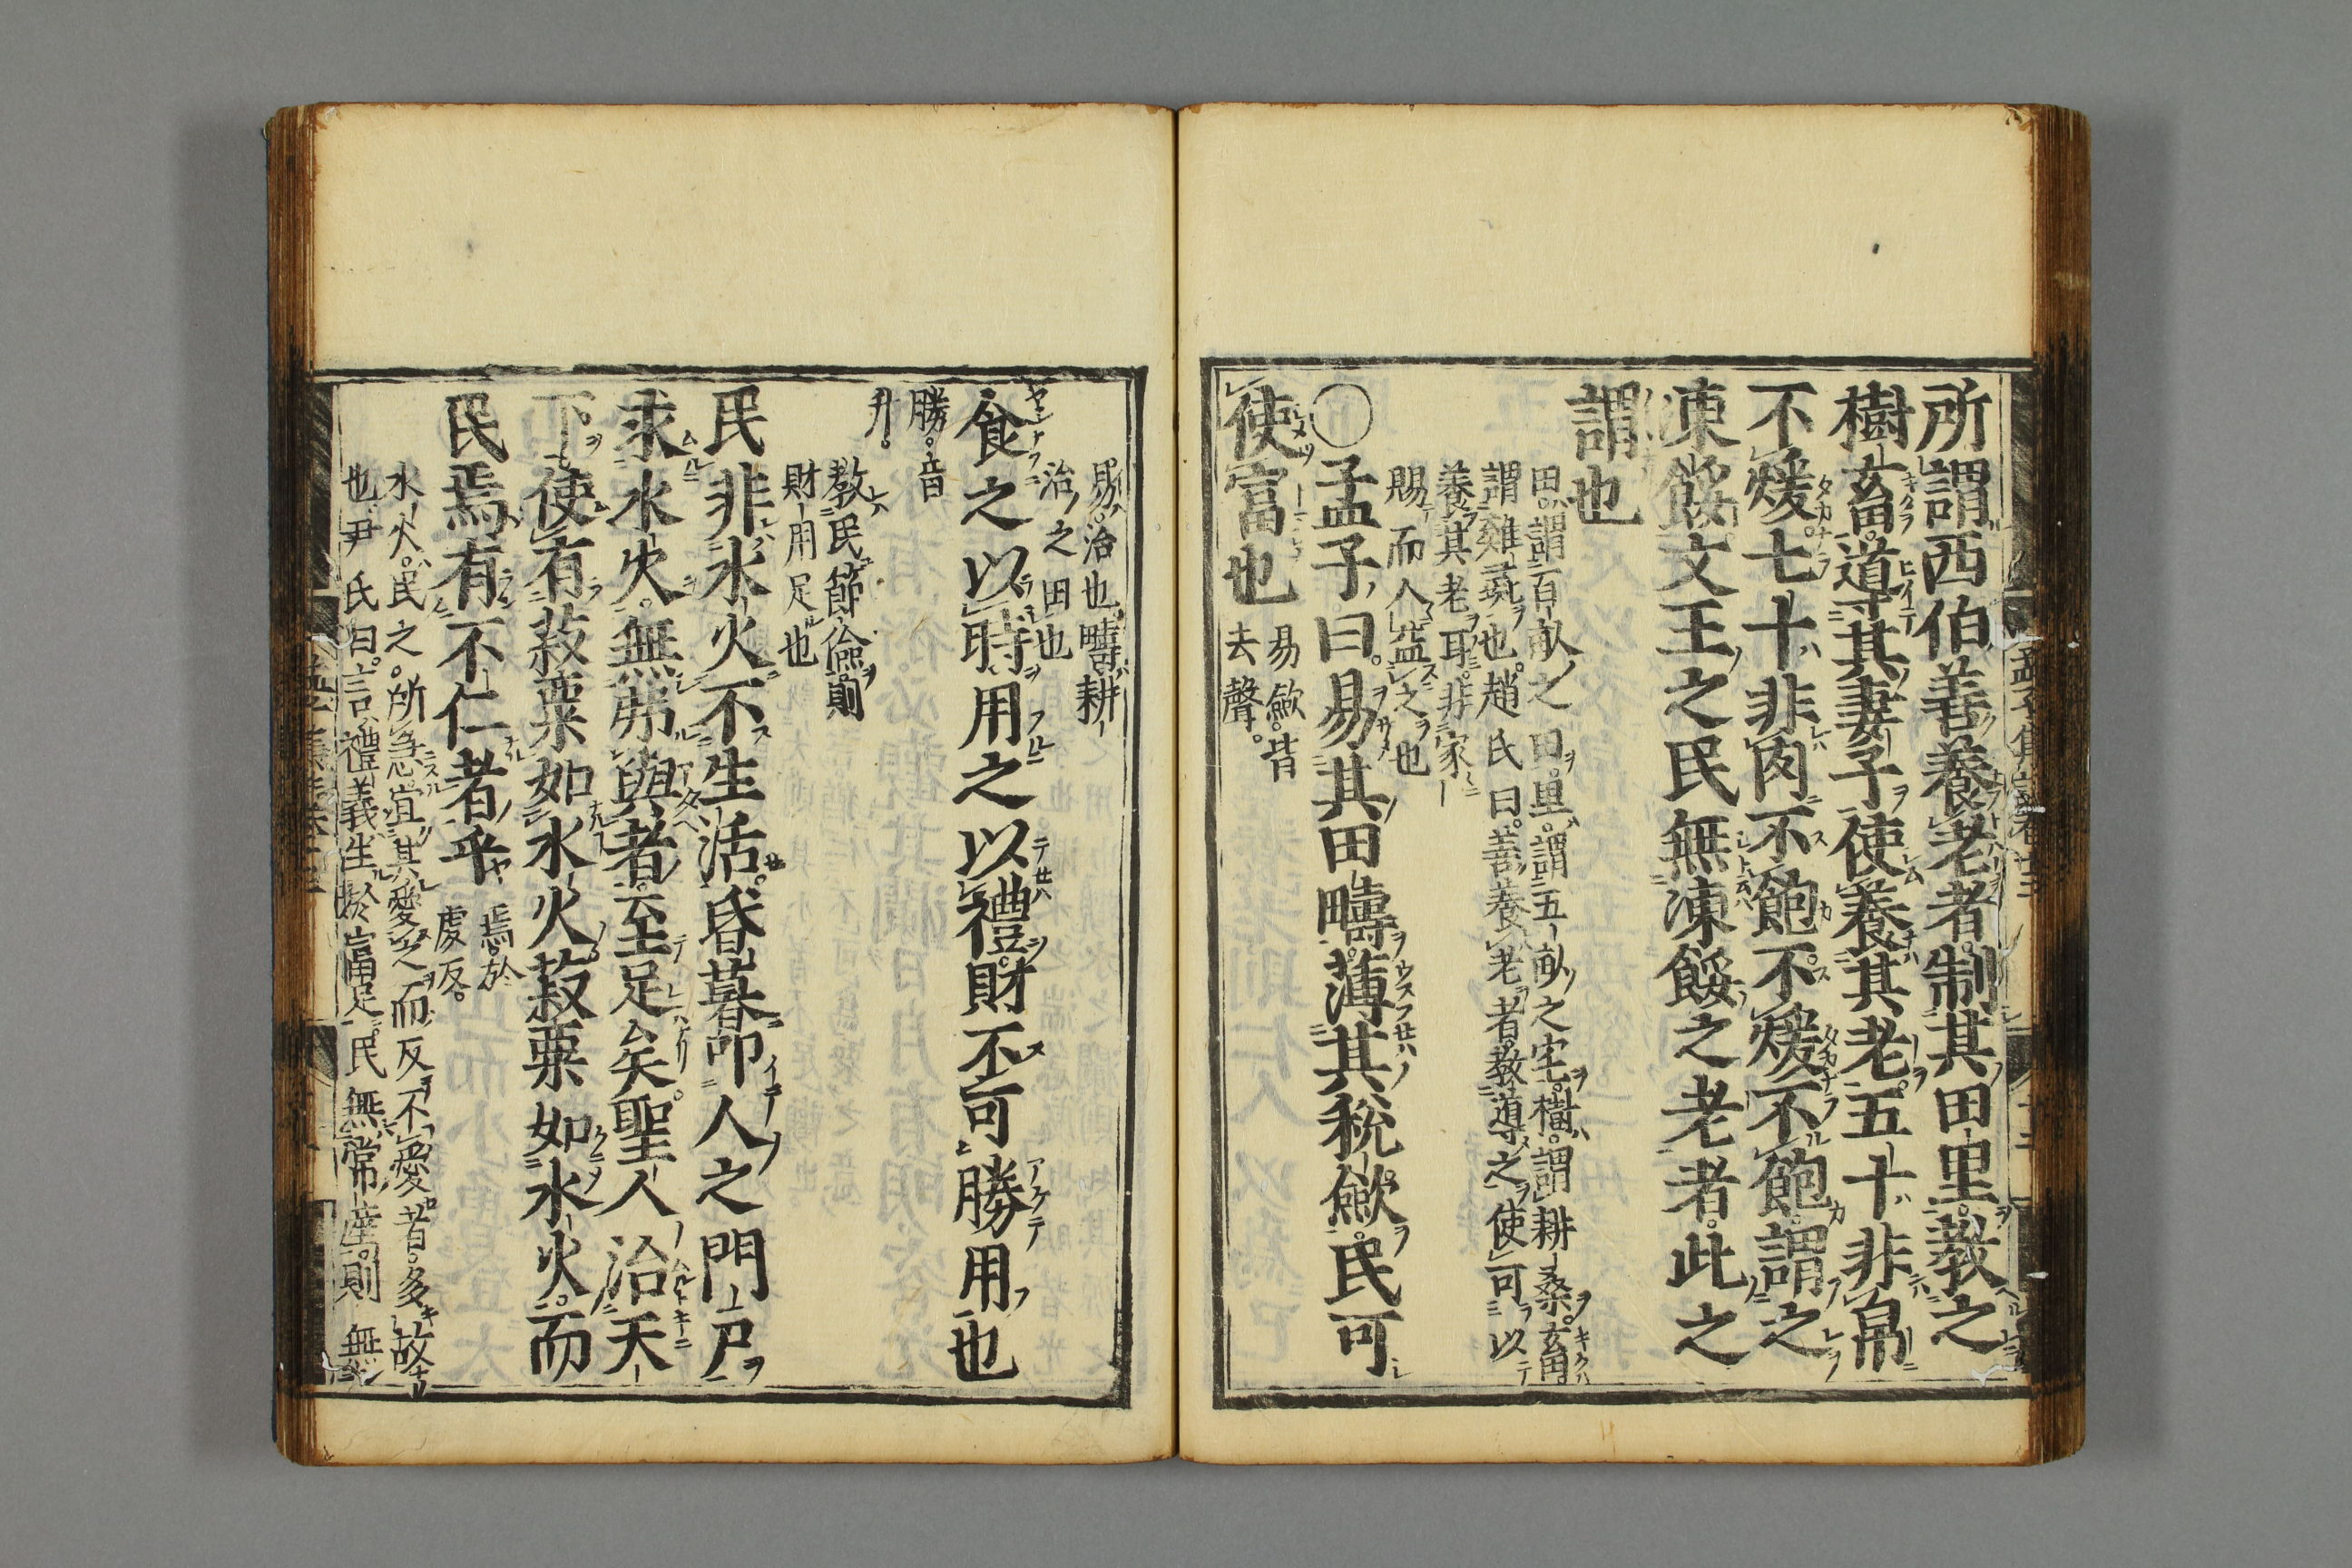 所謂西伯善養老者制其田里教之
樹畜道其妻子使養其老五十非帛
不煖七十非肉不飽不煖不飽謂之
凍餒文王之民無凍餒之老者此之
謂也
田謂百畝之田里謂五畝之宅樹謂耕桑畜
謂雞彘也趙氏曰善養老者教導之使可以
養其老耳非家
賜而人益之也
○孟子曰易其田疇薄其稅斂民可
使富也
易斂皆
去聲
易治也疇耕
治之田也
食之以時用之以禮財不可勝用也
勝音
升
教民節儉則
財用足也
民非水火不生活昏暮叩人之門戶
求水火無弗與者至足矣聖人治天
下使有菽粟如水火菽粟如水火而
民焉有不仁者乎
焉於
虔反
水火民之所急宜其愛之而反不愛者多故
也尹氏曰言禮義生於富足民無常産則無